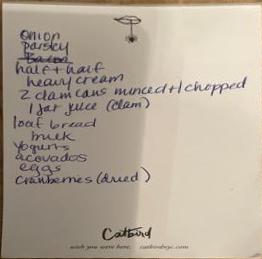 onion
parsley
Bacon
half + half
heavy cream
2 clam cans minced + / chopped
1 jar juice (clam)
loaf bread
milk
yogurts
acovados
eggs
cranberries (dried)
Catbird
wish you were here. catbirdnyc.com